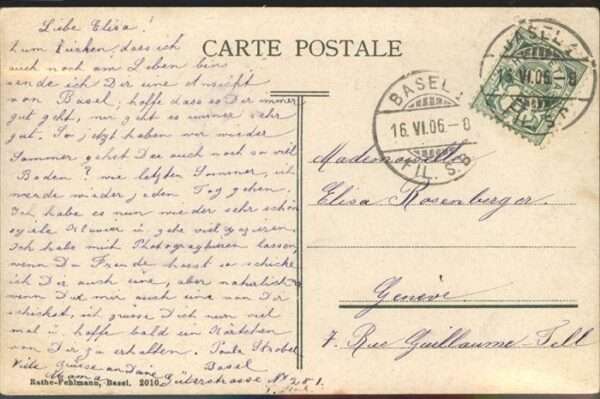 CARTE POSTALE
Liebe Elisa!
Zum Zeichen, dass ich
auch noch am Leben bin
sende ich Dir eine Ansicht
von Basel; hoffe dass es Dir immer
gut geht, mir geht es immer sehr
gut. So jetzt haben wir wieder
Sommer gehst Du auch noch so viel
Baden? wie letzten Sommer, ich
werde wieder jeden Tag gehen.
Ich habe es nun wieder sehr schön
viele Klavier u. gehe viel spazieren.
Ich habe mich Photographieren lassen,
wenn Du Freude hast so schicke
ich Dir auch eine, aber natürlich
wenn Du mir auch eine von Dir
schickst, ich grüsse Dich nun viel
mal u. hoffe bald ein Kärtchen
von Dir zu erhalten. Paula Strobel
Viele Grüsse an Deine Basel
Mama Güterstrasse No 281.
Rathe-Fehlmann, Basel. 2010.
BASEL 2
16.VI.06.-8
FIL. S.B.
BASEL 2
16.VI.06.-8
FIL. S.B.
Mademoiselle
Elisa Rosenberger.
Genève
7. Rue Guillaume-Tell